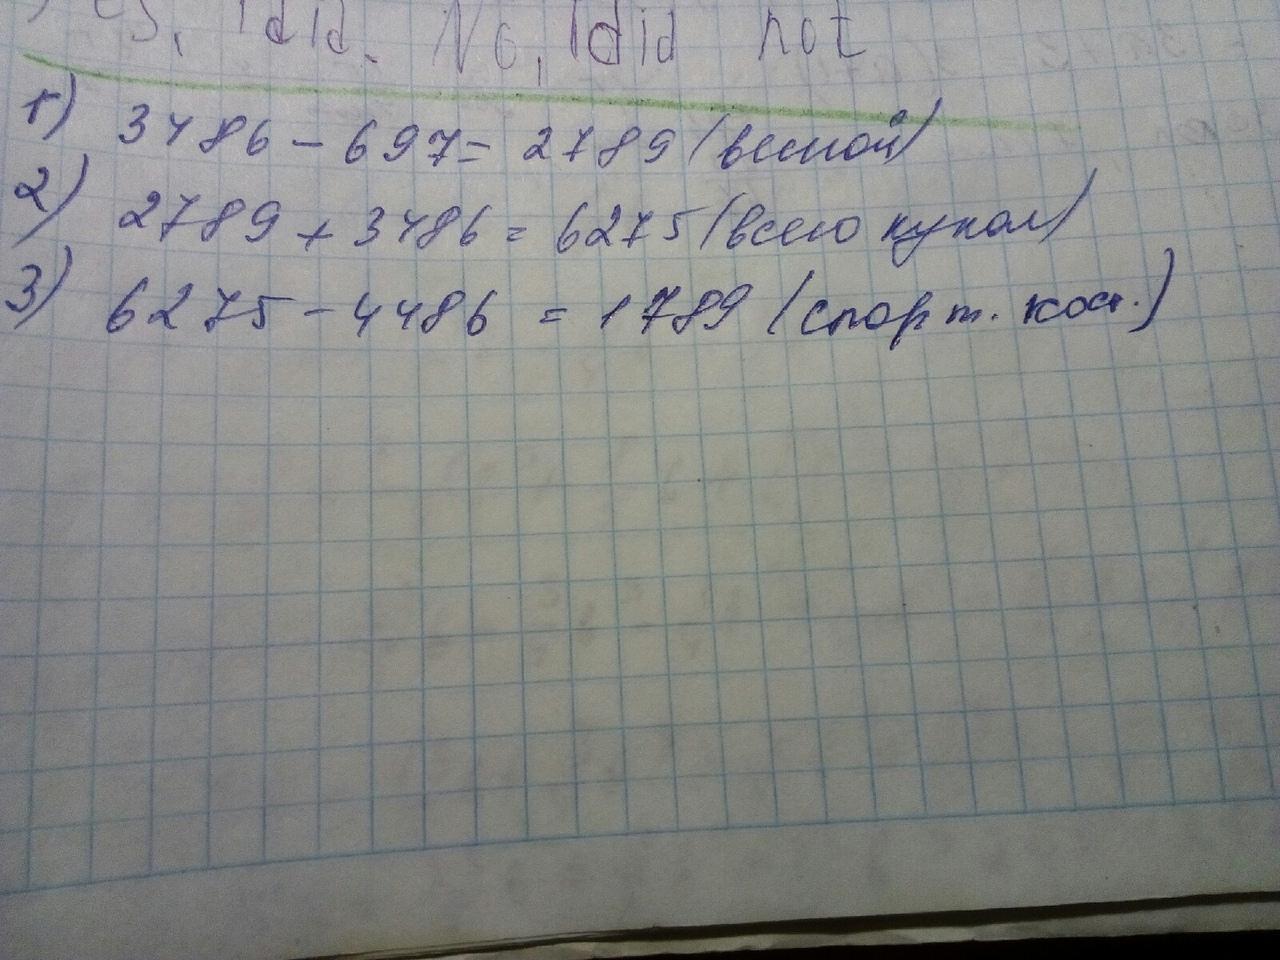 es, I did. No, I did not
1) 3486 - 697 = 2789 (весной)
2) 2789 + 3486 = 6275 (всего купол)
3) 6275 - 4486 = 1789 (спорт. кост.)